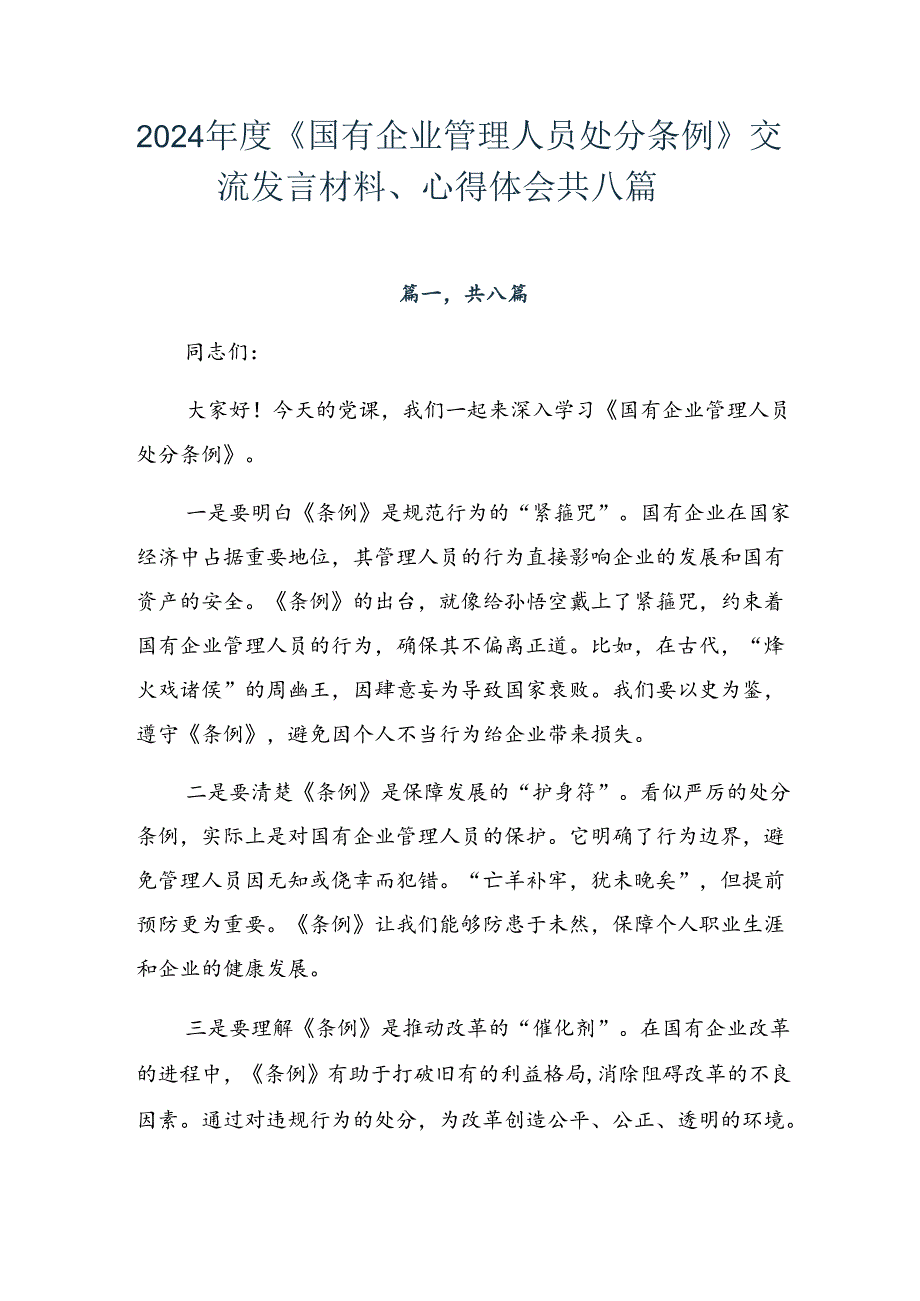 2024年度《国有企业管理人员处分条例》交
流发言材料、心得体会共八篇
篇一，共八篇
同志们：
大家好！今天的党课，我们一起来深入学习《国有企业管理人员
处分条例》。
一是要明白《条例》是规范行为的“紧箍咒”。国有企业在国家
经济中占据重要地位，其管理人员的行为直接影响企业的发展和国有
资产的安全。《条例》的出台，就像给孙悟空戴上了紧箍咒，约束着
国有企业管理人员的行为，确保其不偏离正道。比如，在古代，“烽
火戏诸侯”的周幽王，因肆意妄为导致国家衰败。我们要以史为鉴，
遵守《条例》，避免因个人不当行为给企业带来损失。
二是要清楚《条例》是保障发展的“护身符”。看似严厉的处分
条例，实际上是对国有企业管理人员的保护。它明确了行为边界，避
免管理人员因无知或侥幸而犯错。“亡羊补牢，犹未晚矣”，但提前
预防更为重要。《条例》让我们能够防患于未然，保障个人职业生涯
和企业的健康发展。
三是要理解《条例》是推动改革的“催化剂”。在国有企业改革
的进程中，《条例》有助于打破旧有的利益格局,消除阻碍改革的不良
因素。通过对违规行为的处分，为改革创造公平、公正、透明的环境。